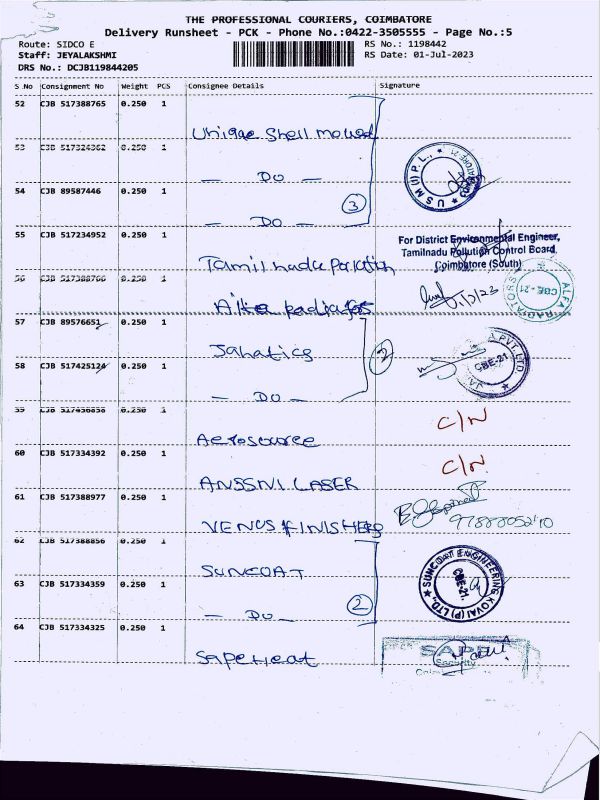 THE PROFESSIONAL COURIERS, COIMBATORE
Delivery Runsheet - PCK - Phone No.:0422-3505555 - Page No.:5
Route: SIDCO E RS No.: 1198442
Staff: JEYALAKSHMI RS Date: 01-Jul-2023
DRS No.: DCJB119844205
S No Consignment No Weight PCS Consignee Details Signature
52 CJB 517388765 0.250 1
Unique Shell mould
53 CJB 517324362 0.250 1
— DO —
USM (I) P. L.,
54 CJB 89587446 0.250 1
3
— DO —
55 CJB 517234952 0.250 1
For District Environmental Engineer,
Tamilnadu Pollution Control Board,
Coimbatore (South)
Tamilnadu Polution
56 CJB 517388766 0.250 1
ALFA RADIATORS
CBE - 21
Alfa Radiators
57 CJB 89576651 0.250 1
Janatics
2
PVT. LTD.
CBE-21
58 CJB 517425124 0.250 1
— DO —
59 CJB 517436838 0.250 1
C/N
Aerosource
60 CJB 517334392 0.250 1
C/N
ANSSNI LASER
61 CJB 517388977 0.250 1
VENUS FINISHERS
62 CJB 517388856 0.250 1
SUNCOAT
SUNCOAT ENGINEERING KOVAI (P) LTD,
CBE-21.
63 CJB 517334359 0.250 1
— DO —
2
64 CJB 517334325 0.250 1
Security
SapeHeat